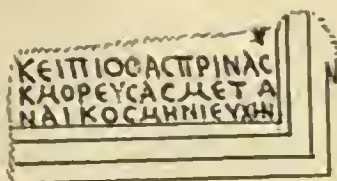 ΚΕΙΠΙΟCΑCΠΡΙΝΑC
ΚΗΟΡΕΥCΑCΜΕΤΑ
ΝΑΙΚΟCΜΗΝΙΕΥΧΗΝ